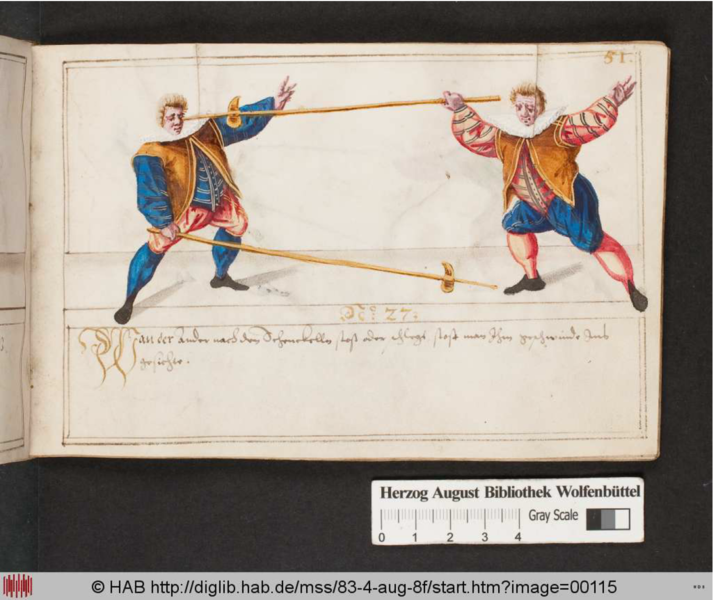 51.
No: 27:
Wan der ander nach den Schenckelln stost oder schlegt stost man Ihm geschwinde Ins
gesichte.
Herzog August Bibliothek Wolfenbüttel
Gray Scale
0 1 2 3 4
© HAB http://diglib.hab.de/mss/83-4-aug-8f/start.htm?image=00115